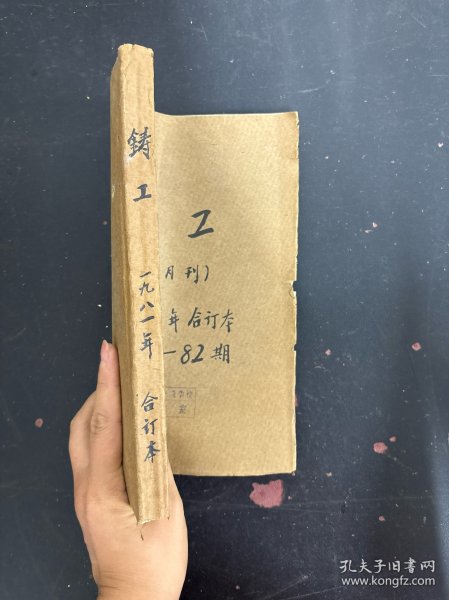 鋳工
一九八一年
合订本
工
月刊）
年合订本
-82期
孔夫子旧书网
www.kongfz.com